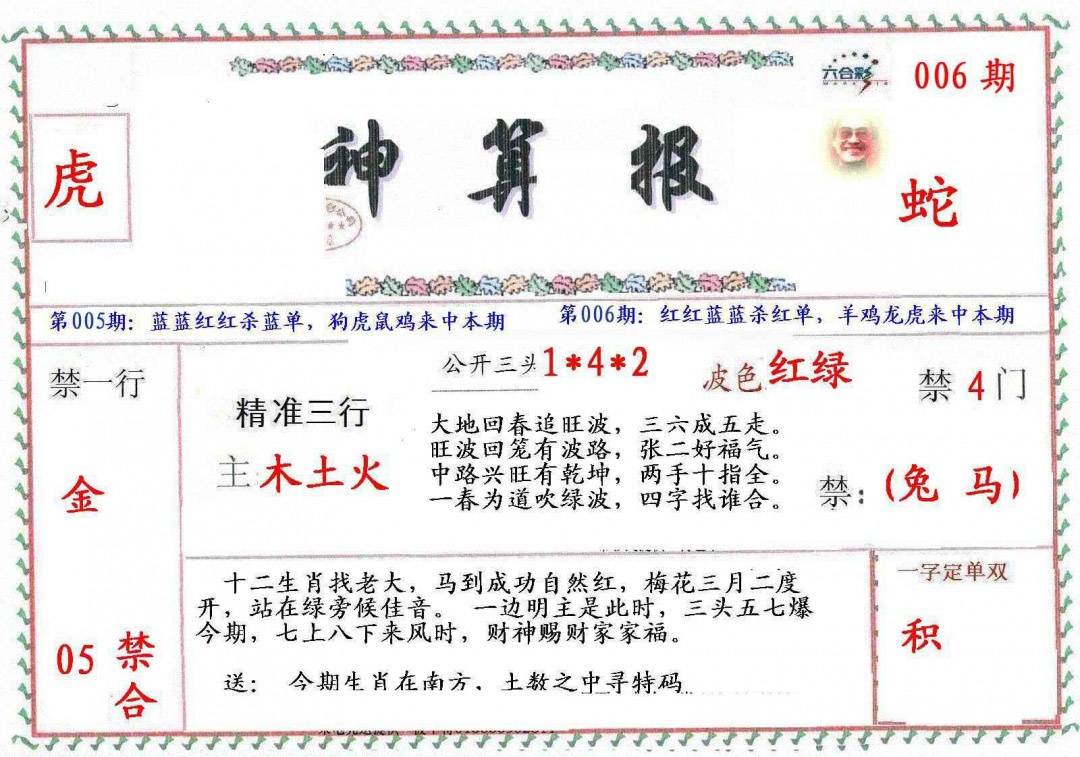 六合彩
006 期
虎
神算报
蛇
第005期：蓝蓝红红杀蓝单，狗虎鼠鸡来中本期
第006期：红红蓝蓝杀红单，羊鸡龙虎来中本期
禁一行
金
05 禁合
精准三行
主 木土火
公开三头 1*4*2
波色 红绿
大地回春追旺波，三六成五走。
旺波回笼有波路，张二好福气。
中路兴旺有乾坤，两手十指全。
一春为道吹绿波，四字找谁合。
禁 4 门
禁：(兔 马)
十二生肖找老大，马到成功自然红，梅花三月二度
开，站在绿旁候佳音。 一边明主是此时，三头五七爆
今期，七上八下来风时，财神赐财家家福。
送： 今期生肖在南方，土数之中寻特码
一字定单双
积